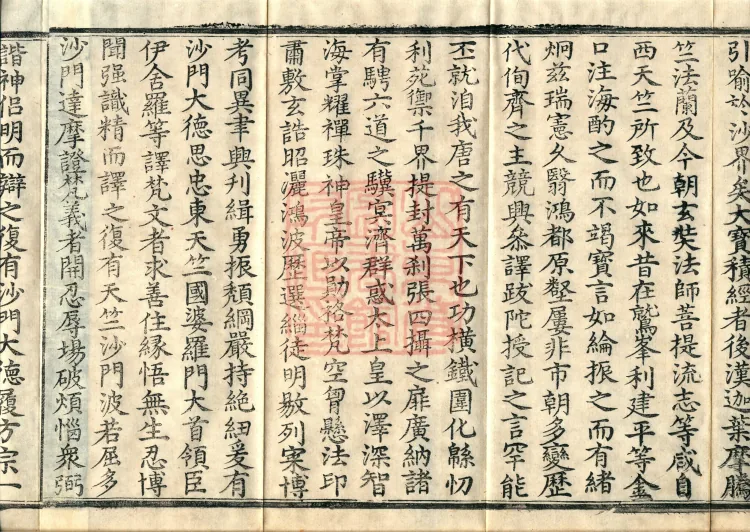 引喻於沙界矣大寶積經者後漢迦葉摩騰
竺法蘭及今朝玄奘法師菩提流志等咸自
西天竺所致也如來昔在鷲峯利建平等金
口注海酌之而不竭寶言如綸振之而有緒
炯兹瑞憲久翳鴻都原壑屢非市朝多變歷
代徇齊之主競興叅譯跋陀授記之言罕能
丕就洎我唐之有天下也功横鐵圍化緜忉
利苑禦千界提封萬剎張四攝之扉廣納諸
有騁六道之驥寅濟群惑太上皇以澤深智
海掌耀禪珠神皇帝以助格梵空曾懸法印
肅敷玄誥昭灑鴻波歷選緇徒明敭列寀博
考同異聿興刋緝勇振頹綱嚴持絶紐爰有
沙門大德思忠東天竺國婆羅門大首領臣
伊舍羅等譯梵文者求善住緣悟無生忍博
聞强識精而譯之復有天竺沙門波若屈多
沙門達摩證梵義者開忍辱場破煩惱衆弼
諧神侣明而辯之復有沙門大德履方宗一